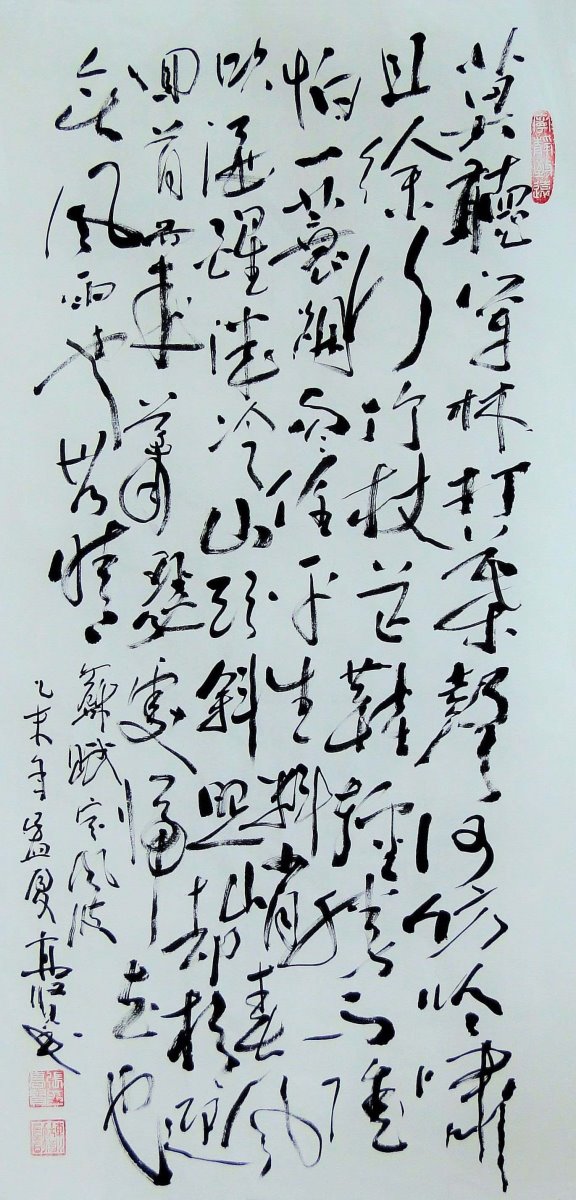 莫聽穿林打葉聲何妨吟嘯
且徐行竹杖芒鞋輕勝馬誰
怕一蓑烟雨任平生料峭春風
吹酒醒微冷山頭斜照却相迎
回首向来蕭瑟處歸去也
無風雨也無晴
蘇軾定風波
乙未年孟夏